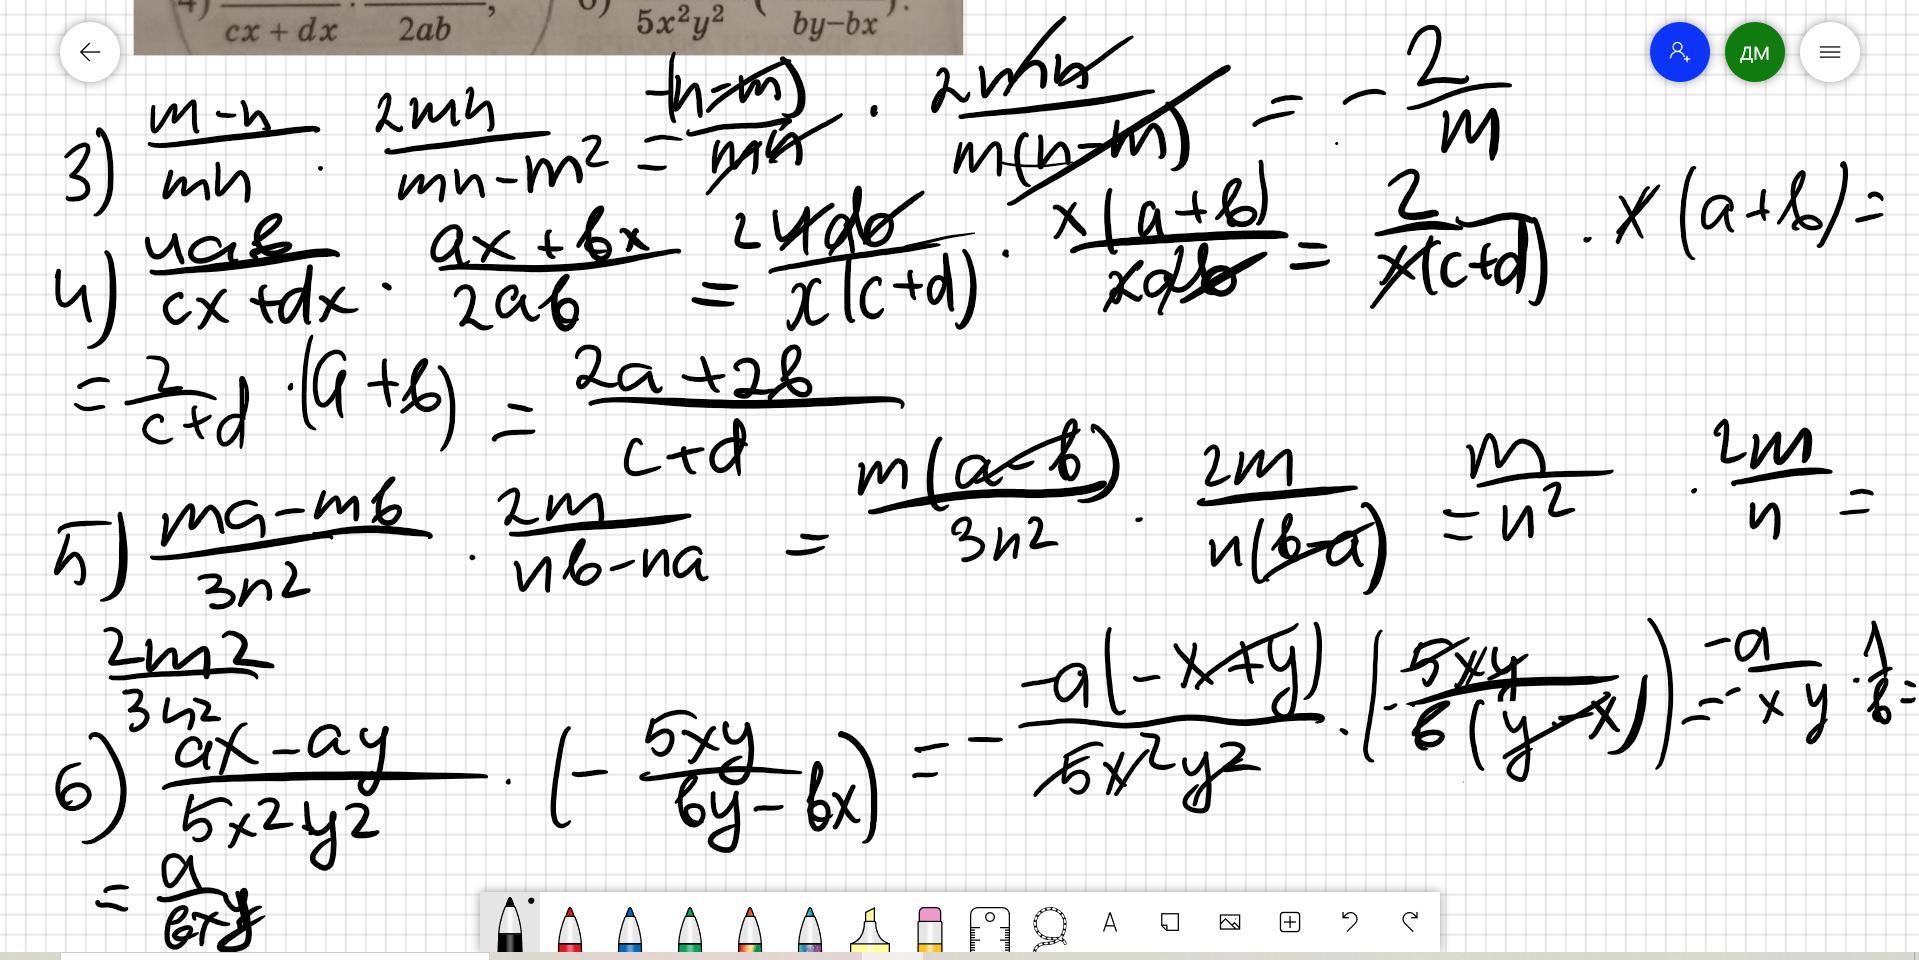 4) cx + dx · 2ab ; 6) 5x²y² ( by−bx ).
ДМ
3) (m−n)/(mn) · (2mn)/(mn−m²) = (−(n−m))/(mn) · (2mn)/(m(n−m)) = −2/m
4) (4ab)/(cx+dx) · (ax+bx)/(2ab) = (2 4ab)/(x(c+d)) · (x(a+b))/(x2ab) = 2/(x(c+d)) · x(a+b) =
= 2/(c+d) · (a+b) = (2a+2b)/(c+d)
5) (ma−mb)/(3n²) · (2m)/(nb−na) = (m(a−b))/(3n²) · (2m)/(n(b−a)) = m/n² · 2m/n =
2m2/3n2
6) (ax−ay)/(5x²y2) · (−(5xy)/(by−bx)) = −(−a(−x+y))/(5x²y2) · (−(5xy)/(b(y−x))) = −(−a)/(xy) · 1/b =
= a/(bxy)
A